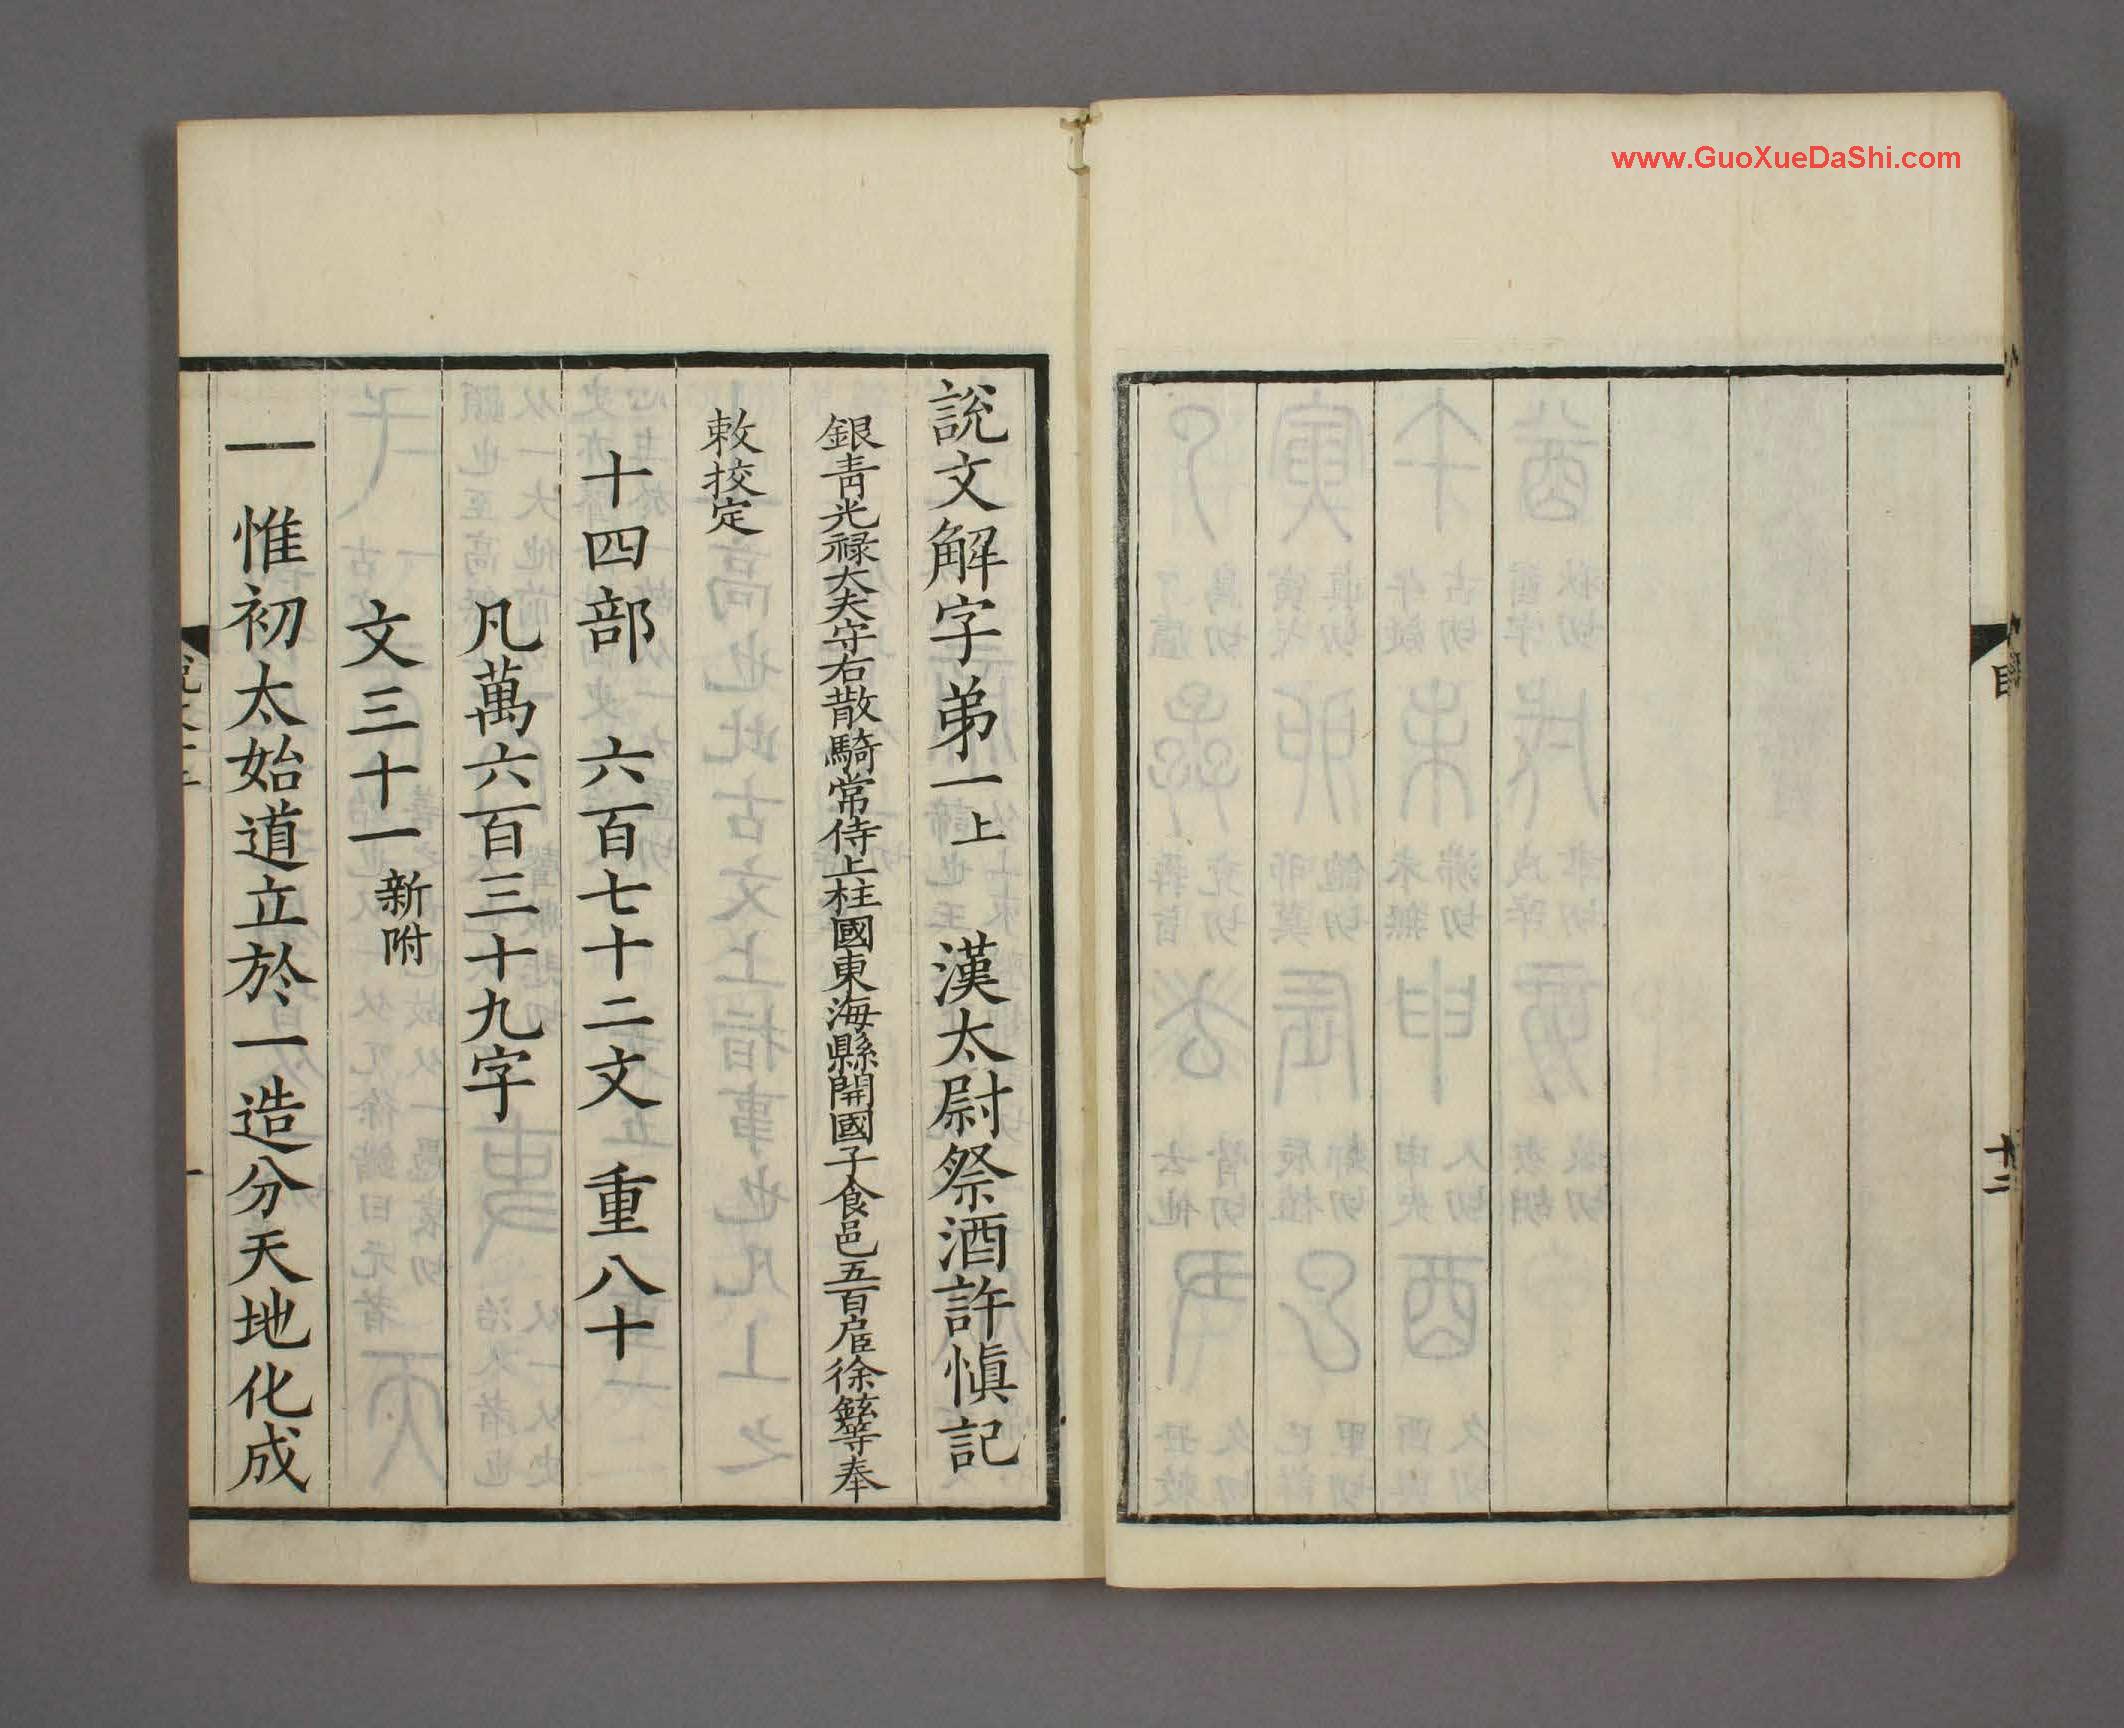 www.GuoXueDaShi.com
十二
說文解字弟一上 漢太尉祭酒許愼記
銀青光祿大夫守右散騎常侍上柱國東海縣開國子食邑五百戶臣徐鉉等奉
敕挍定
十四部 六百七十二文 重八十
凡萬六百三十九字
文三十一新附
一 惟初太始道立於一造分天地化成